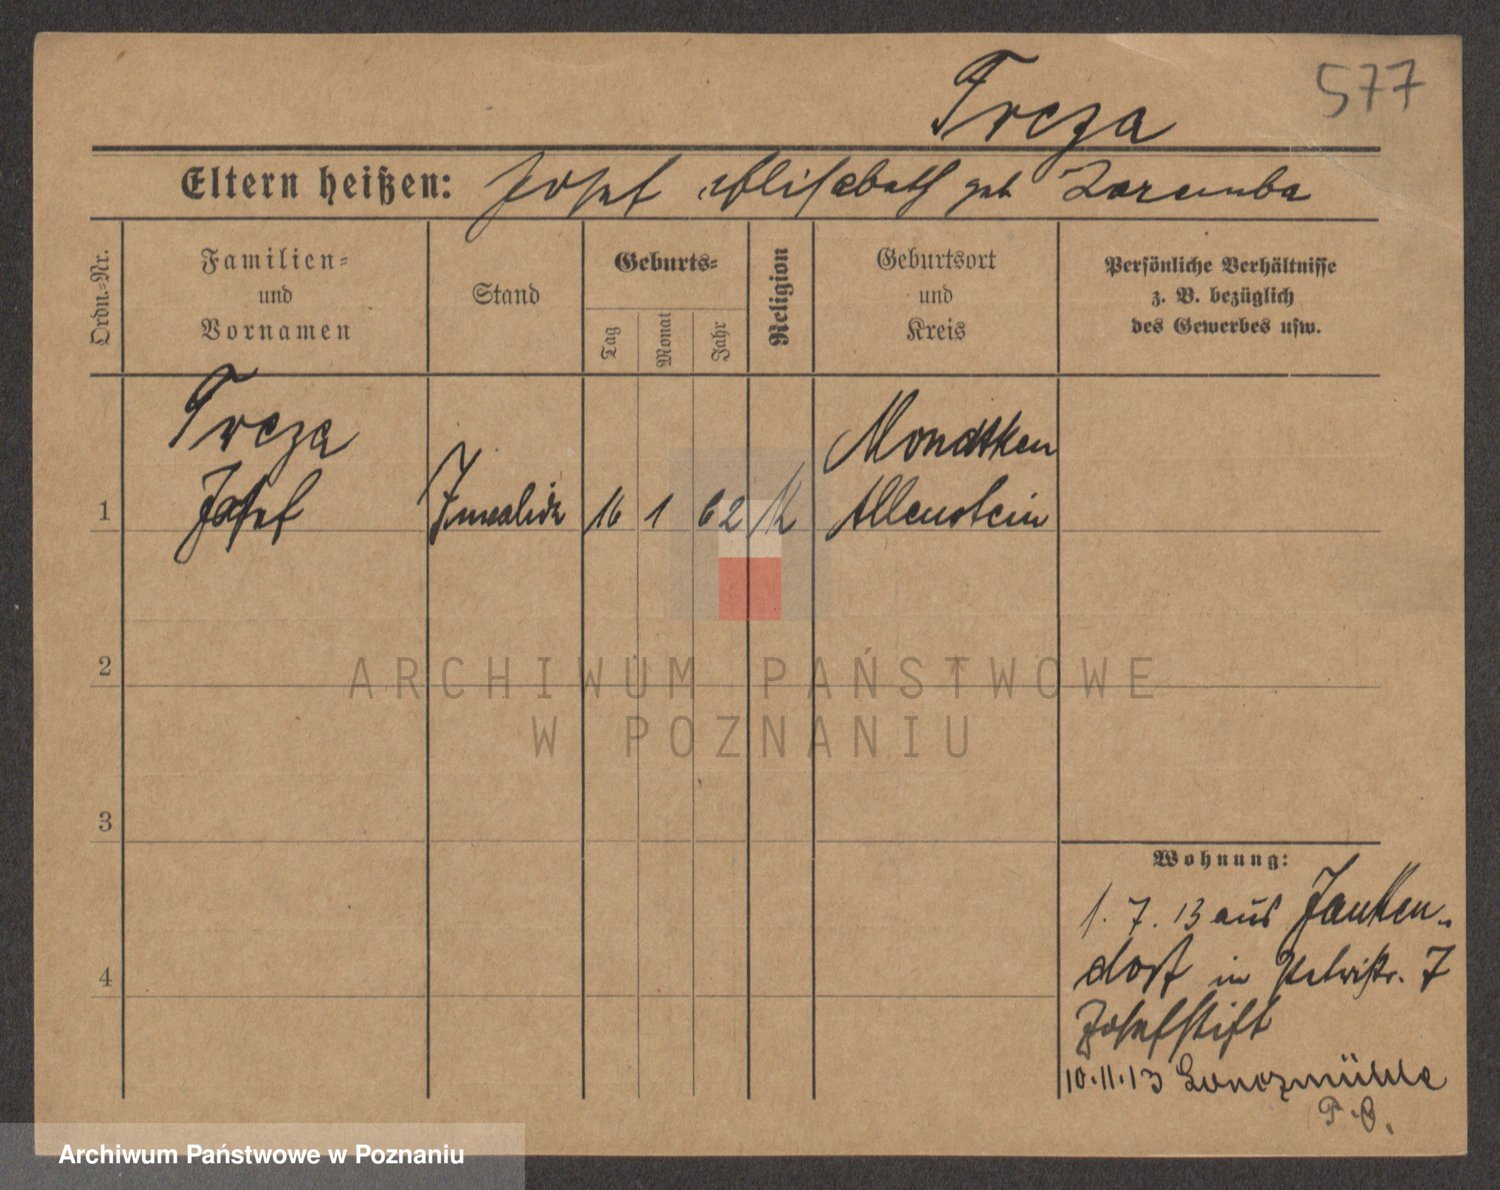 577
Treza
Eltern heißen: Josef Elisabeth geb Zaremba
Ordn.-Nr.
Familien-
und
Vornamen
Stand
Geburts-
Tag
Monat
Jahr
Religion
Geburtsort
und
Kreis
Persönliche Verhältnisse
z. B. bezüglich
des Gewerbes usw.
Treza
Mondtken
1 Josef Invalide 16 1 62 K Allenstein
2
ARCHIWUM PAŃSTWOWE
W POZNANIU
3
Wohnung:
1.7.13 aus Janken-
4
dorf in Petristr. 7
Josefstift
10.11.13 Lonczmühle
P. O.
Archiwum Państwowe w Poznaniu